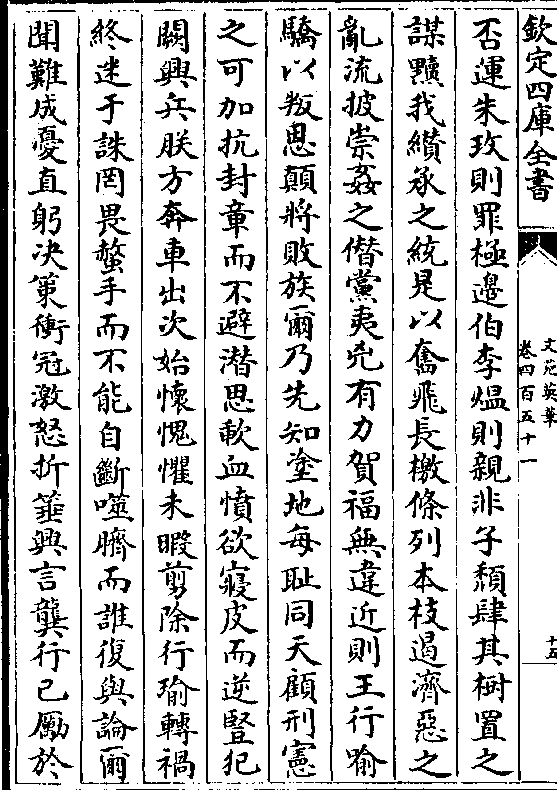 欽定四庫全書
文苑英華
卷四百五十一
十五
否運朱玫則罪極邊伯李熅則親非子頽肆其樹置之
謀黷我纘承之統是以奮飛長檄條列本枝遏濟惡之
亂流披崇姦之僣黨夷兇有力賀福無違近則王行瑜
驕以叛思顛將敗族爾乃先知塗地每恥同天顧刑憲
之可加抗封章而不避潜思歃血憤欲寢皮而逆豎犯
闕興兵朕方奔車出次始懷愧懼未暇剪除行瑜轉禍
終迷于誅罔畏螫手而不能自斷噬臍而誰復與論爾
聞難成憂直躬决䇿衝冠激怒折箠興言龔行已勵於